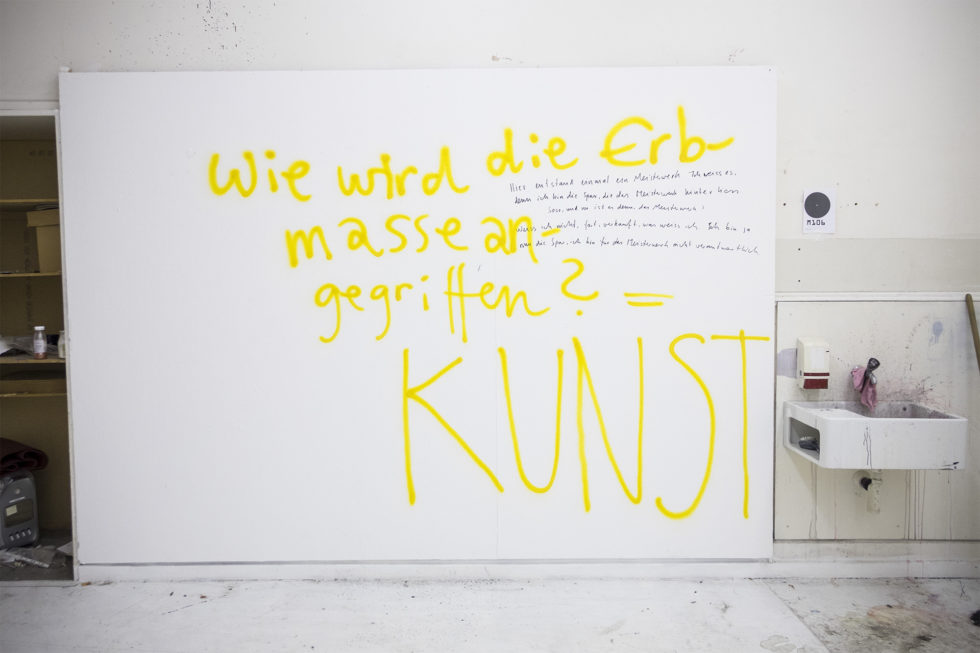 Wie wird die Erb-
masse an-
gegriffen? =
KUNST
Hier entstand einmal ein Meisterwerk. Ich weiss es,
denn ich bin die Spur, die das Meisterwerk hinterliess.
und wo ist es denn, das Meisterwerk?
Weiss ich nicht, fort, verkauft, was weiss ich. Ich bin ja
nur die Spur, ich bin für das Meisterwerk nicht verantwortlich
M106